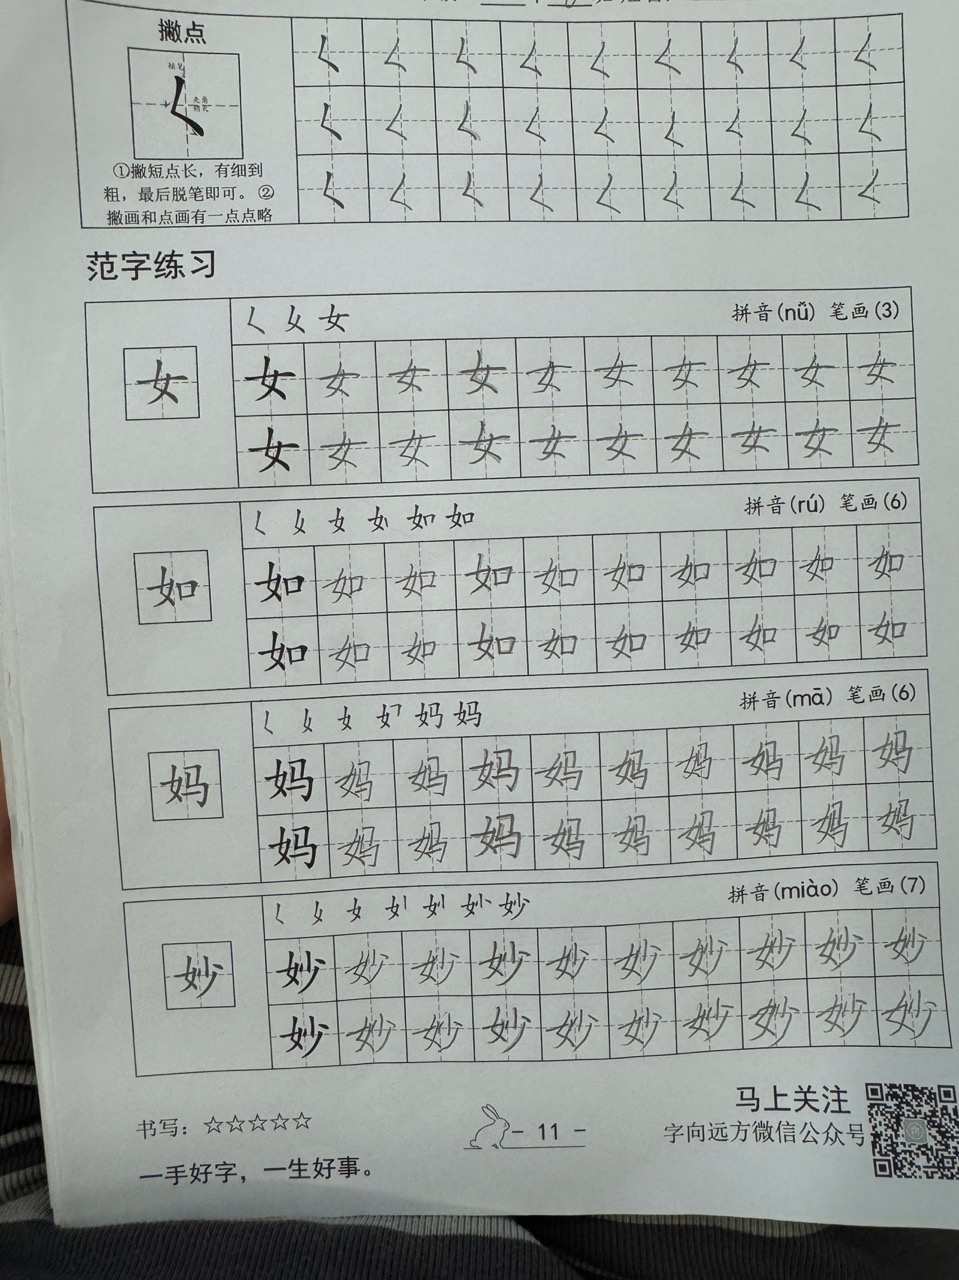 撇点
①撇短点长，有细到
粗，最后脱笔即可。②
撇画和点画有一点点略
范字练习
女
拼音(nǚ) 笔画(3)
女 女 女 女 女 女 女 女 女 女
女 女 女 女 女 女 女 女 女 女
女
如 拼音(rú) 笔画(6)
如 如 如 如 如 如 如 如 如 如
如 如 如 如 如 如 如 如 如 如
如
妈 妈 拼音(mā) 笔画(6)
妈 妈 妈 妈 妈 妈 妈 妈 妈 妈
妈 妈 妈 妈 妈 妈 妈 妈 妈 妈
妈
妙 拼音(miào) 笔画(7)
妙 妙 妙 妙 妙 妙 妙 妙 妙 妙
妙 妙 妙 妙 妙 妙 妙 妙 妙 妙
妙
书写：☆☆☆☆☆
- 11 -
马上关注
字向远方微信公众号
一手好字，一生好事。